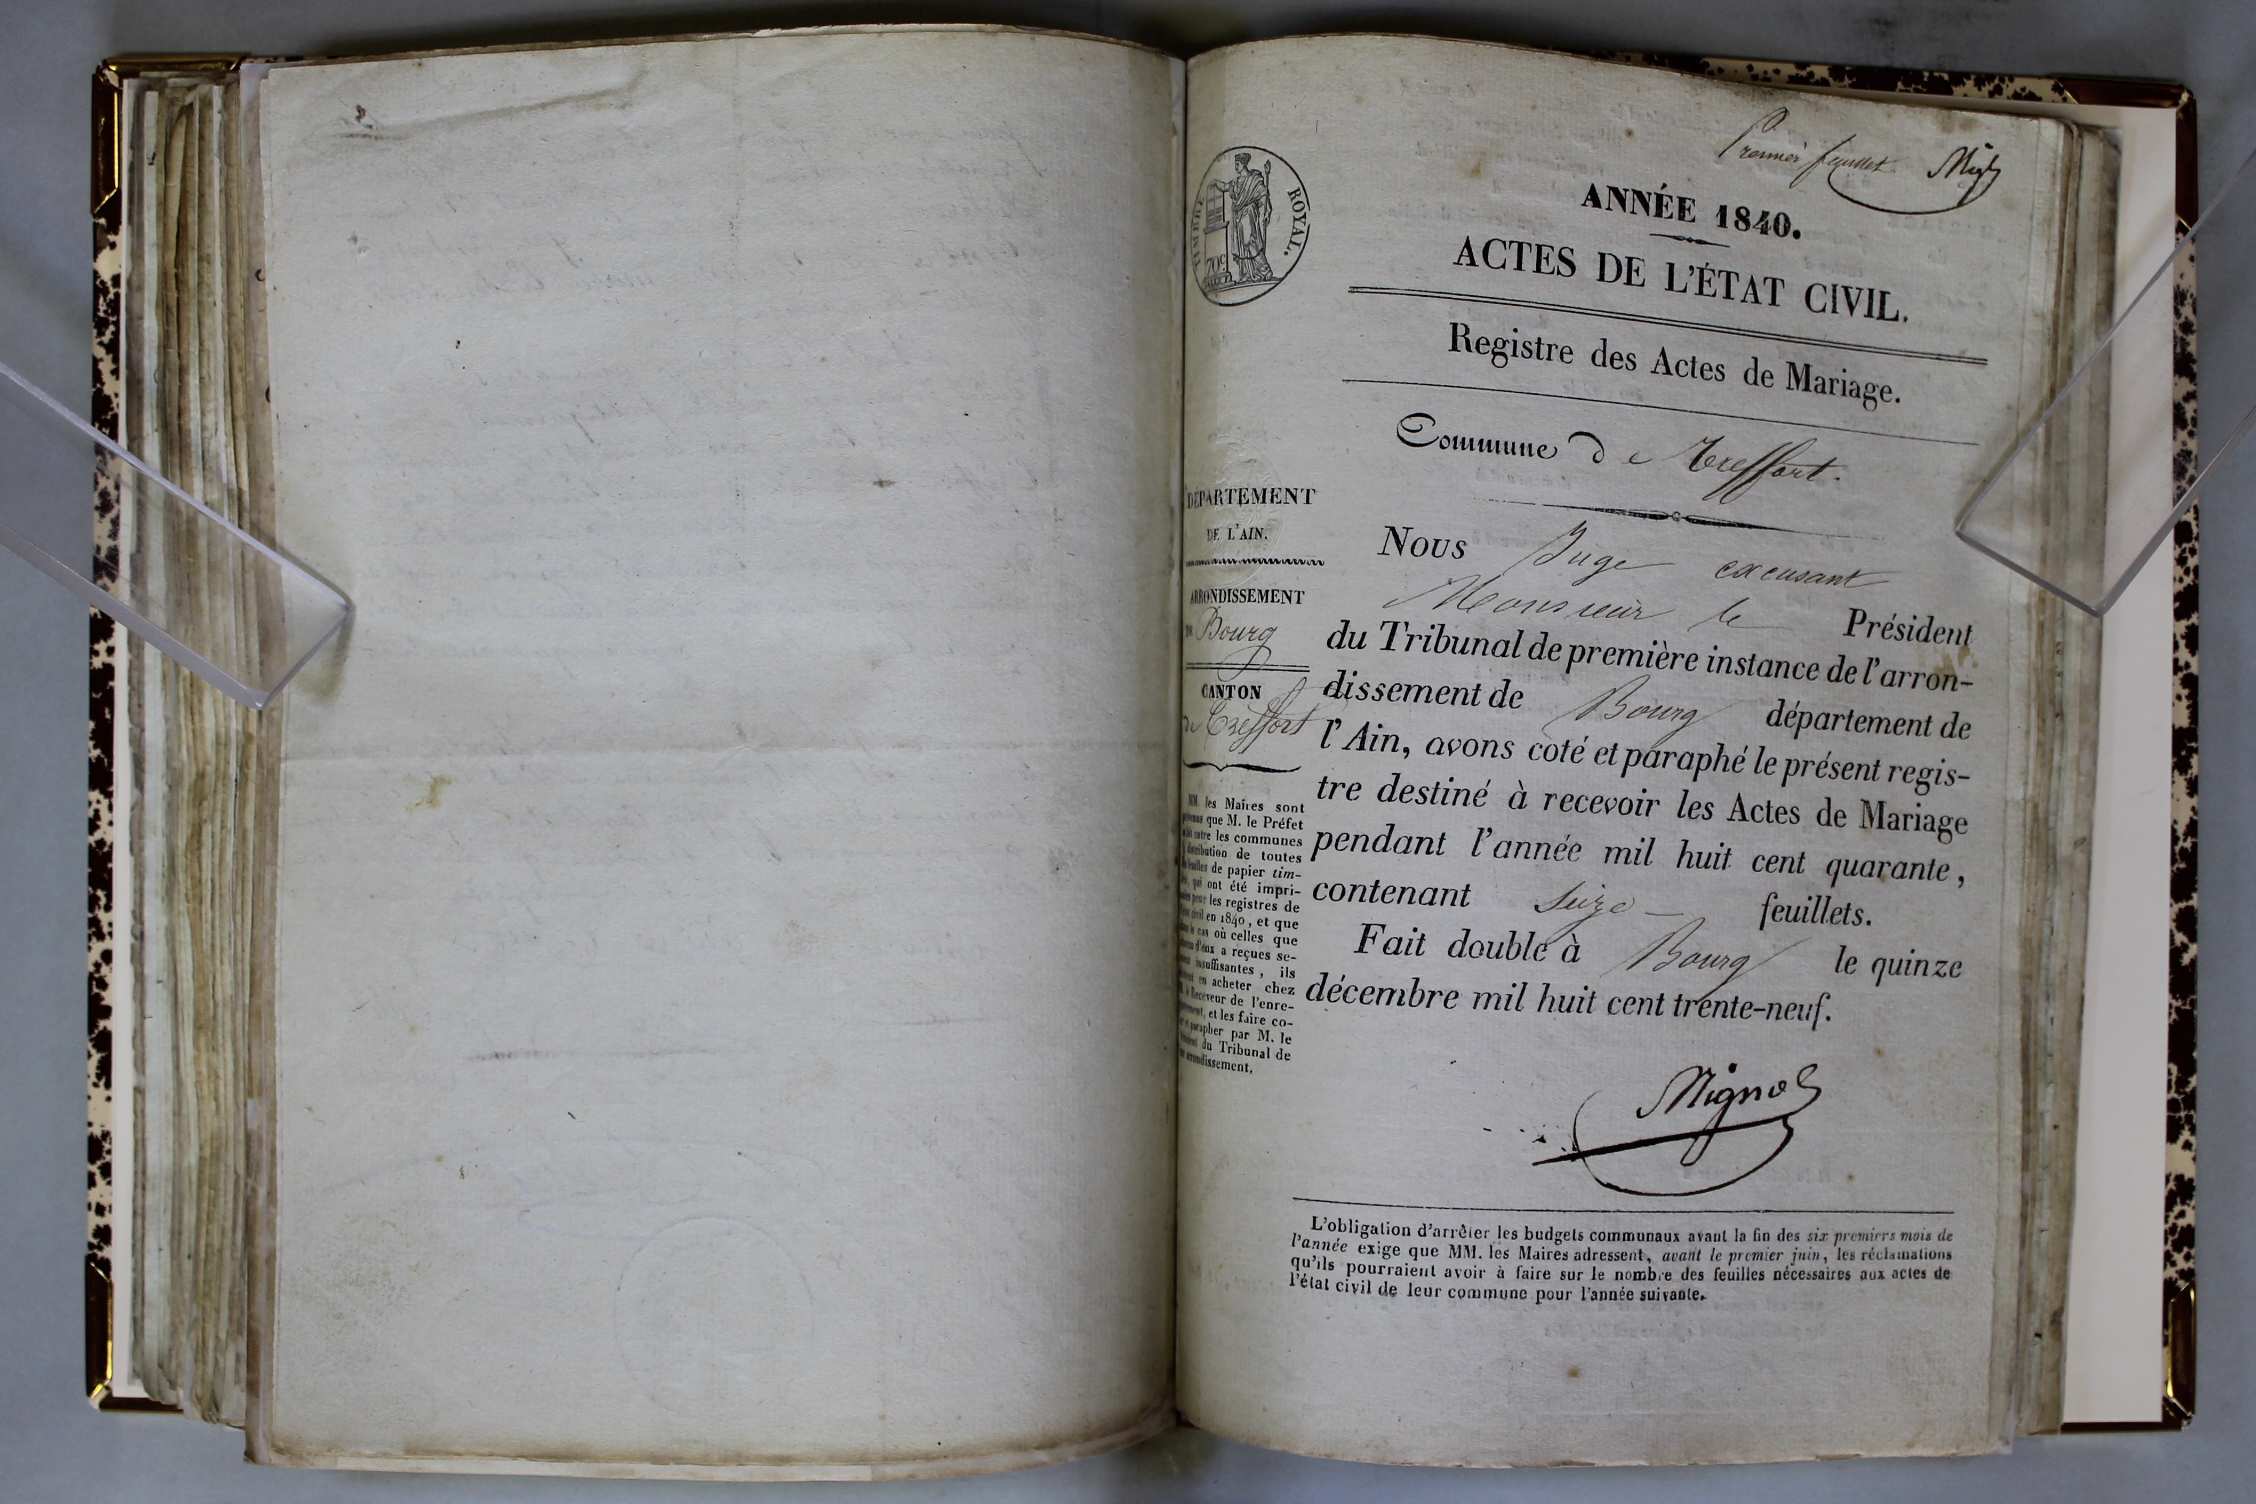 Premier feuillet Mig
TIMBRE ROYAL.
70c
ANNÉE 1840.
ACTES DE L'ÉTAT CIVIL.
Registre des Actes de Mariage.
Commune de Treffort.
DÉPARTEMENT
DE L'AIN.
ARRONDISSEMENT
Bourg
CANTON
de Treffort
MM. les Maires sont
que M. le Préfet
entre les communes
distribution de toutes
feuilles de papier tim-
qui ont été impri-
pour les registres de
civil en 1840, et que
le cas où celles que
d'eux a reçues se-
insuffisantes, ils
en acheter chez
Receveur de l'enre-
et les faire co-
parapher par M. le
du Tribunal de
arrondissement.
Nous Juge excusant
Monsieur le Président
du Tribunal de première instance de l'arron-
dissement de Bourg département de
l'Ain, avons coté et paraphé le présent regis-
tre destiné à recevoir les Actes de Mariage
pendant l'année mil huit cent quarante,
contenant seize feuillets.
Fait double à Bourg le quinze
décembre mil huit cent trente-neuf.
Mignot
L'obligation d'arrêter les budgets communaux avant la fin des six premiers mois de
l'année exige que MM. les Maires adressent, avant le premier juin, les réclamations
qu'ils pourraient avoir à faire sur le nombre des feuilles nécessaires aux actes de
l'état civil de leur commune pour l'année suivante.